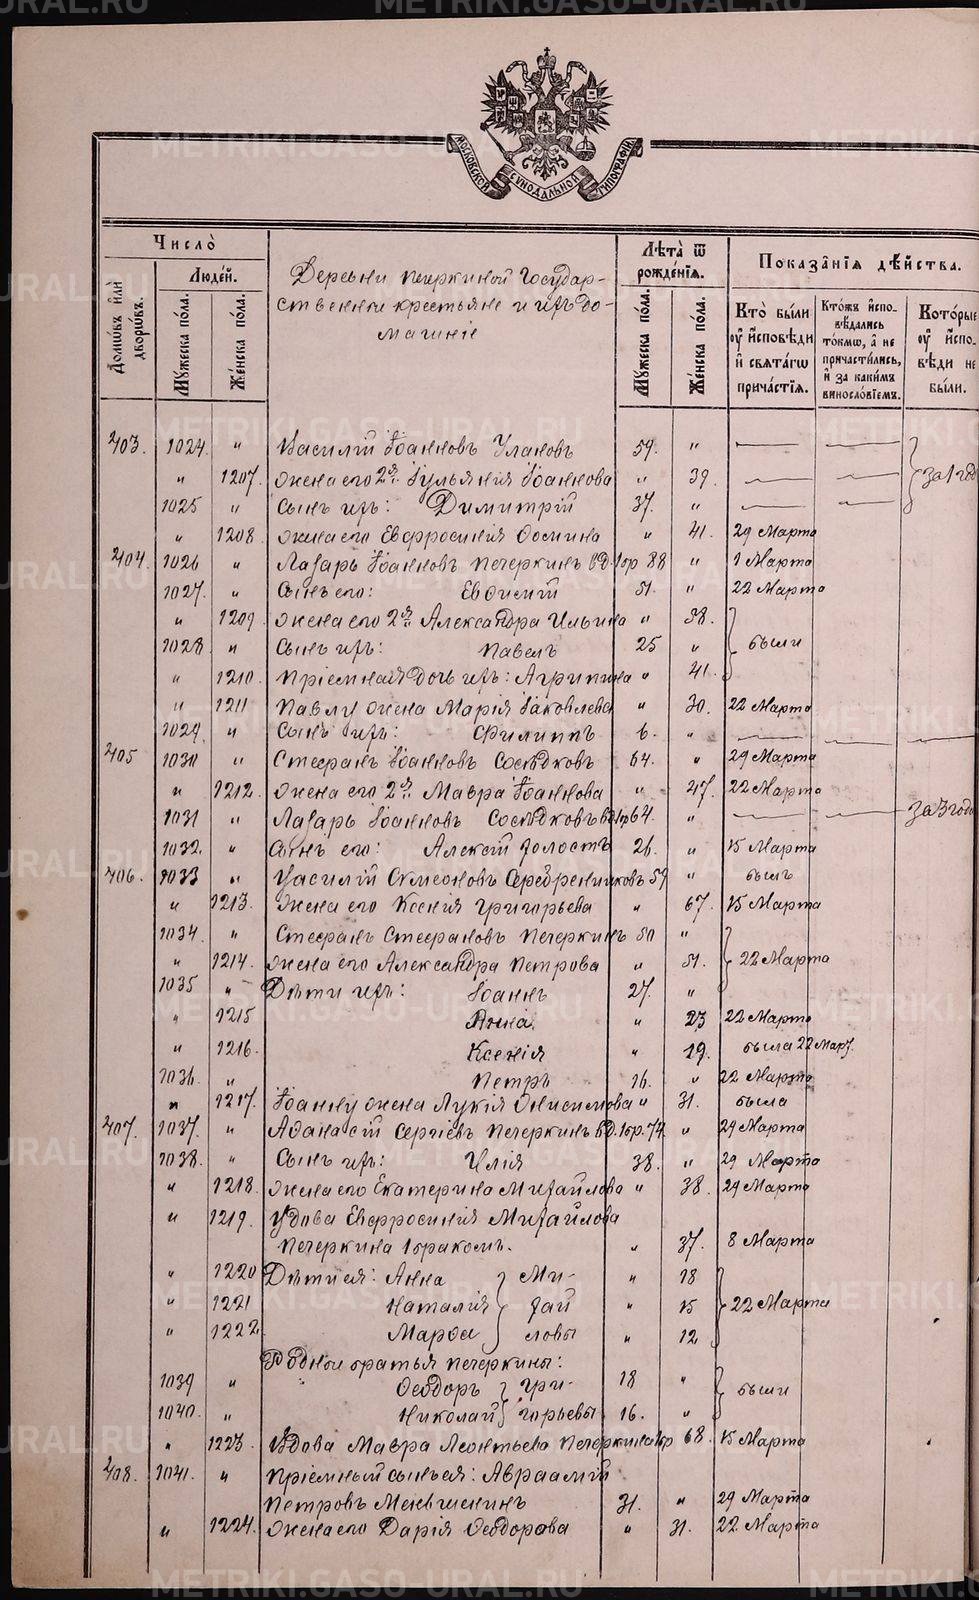 METRIKI.GASO-URAL.RU
МОСКОВСКОЙ СѴНОДАЛЬНОЙ ТИПОГРАФІИ
Число̀
Людей.
Домѡвъ илѝ дворѡвъ.
Мужеска по́ла.
Же́нска по́ла.
Деревни Печеркиной Государ-
ственныи крестьяне и ихъ до-
машніе
Лѣта̀ ѿ рожде́нїѧ.
Мужеска по́ла.
Же́нска по́ла.
Показа́нїѧ дѣ́йства.
Кто̀ бы́ли оу҆ и҆сповѣди и҆ свѧта́гѡ прича́стїѧ.
Кто́жъ и҆спо-вѣ́дались то́кмѡ, а҆ не причасти́лись, и҆ за каки́мъ винослові́емъ.
Кото́рые оу҆ и҆спо-вѣди не бы́ли.
403. 1024. " Василій Іоанновъ Улановъ 59. " за 1 год
" 1207. жена его 2я Іульянія Іоаннова " 39.
1025 " Сынъ ихъ: Димитрій 37. "
" 1208. жена его Евфросинія Фомина " 41. 29 Марта
404. 1026 " Лазарь Іоанновъ Печеркинъ вд. 1 бр 88 " 1 Марта
1027. " Сынъ его: Евфимій 51. " 22 Марта
" 1209. жена его 2я Александра Ильина " 38. были
1028. " Сынъ ихъ: Павелъ 25 "
" 1210. Пріемная дочь ихъ: Агрипина " 41.
" 1211 Павлу жена Марія Іаковлева " 30. 22 Марта
1029. " Сынъ ихъ: Филиппъ 6. "
405 1030 " Стефанъ Іоанновъ Сосѣдковъ 64. " 29 Марта
" 1212. жена его 2я Мавра Іоаннова " 47. 22 Марта
1031 " Лазарь Іоанновъ Сосѣдковъ вд 1 бр 64. " за 3 года
1032. " Сынъ его: Алексій холостъ 26. " 15 Марта
406. 1033 " Василій Симеоновъ Серебренниковъ 59 " былъ
" 1213. жена его Ксенія Григорьева " 67. 15 Марта
1034. " Стефанъ Стефановъ Печеркинъ 50 "
" 1214. жена его Александра Петрова " 51. 22 Марта
1035 " Дѣти ихъ: Іоаннъ 27. "
" 1215 Анна " 23 22 Марта
" 1216. Ксенія " 19. была 22 Мар.
1036. " Петръ 16. " 22 Марта
" 1217. Іоанну жена Лукія Онисимова " 31. была
407. 1037. " Афанасій Сергіевъ Печеркинъ вд. 1 бр. 74 " 29 Марта
1038. " Сынъ ихъ: Илія 38. " 29 Марта
" 1218. жена его Екатерина Михайлова " 38. 29 Марта
" 1219. Вдова Евфросинія Михайлова
Печеркина 1 бракомъ. " 37. 8 Марта
" 1220 Дѣти ея: Анна Ми- " 18
" 1221 Наталія хай " 15 22 Марта
" 1222 Марфа ловы " 12
Родные братья Печеркины:
1039 " Феодоръ Гри- 18 " были
1040. " Николай горьевы 16. "
" 1223. Вдова Мавра Леонтьева Печеркина 1 бр 68. 15 Марта
408. 1041. " Пріемный сынъ ея: Авраамій
Петровъ Меньшенинъ 31. " 29 Марта
" 1224. жена его Дарія Феодорова " 31. 22 Марта